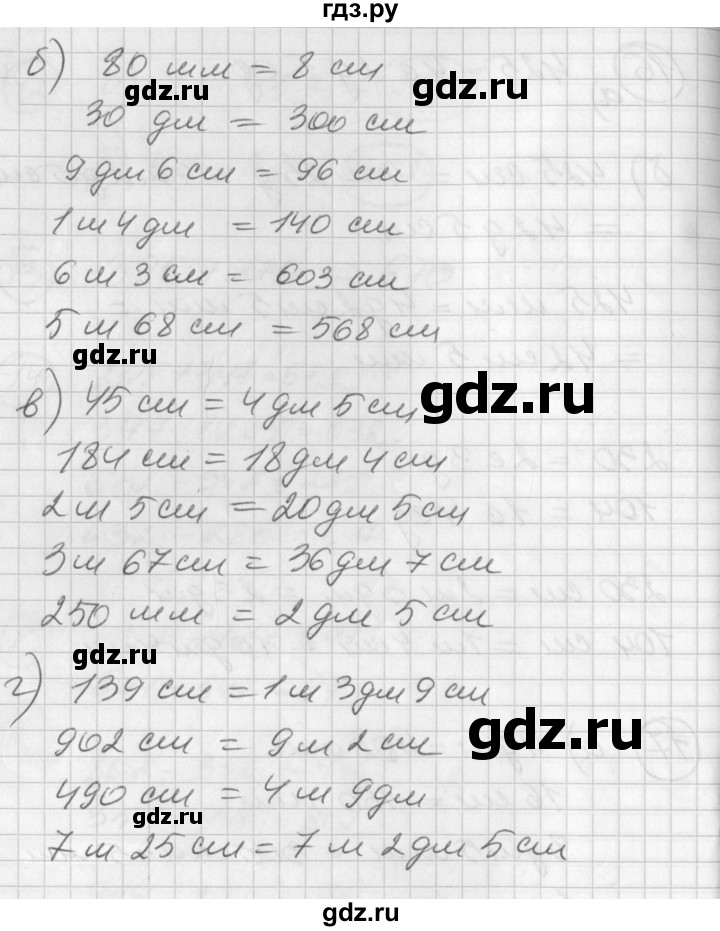 гдз.ру
б) 80 мм = 8 см
gdz.ru
gdz.ru
30 дм = 300 см
9 дм 6 см = 96 см
1 м 4 дм = 140 см
6 м 3 см = 603 см
5 м 68 см = 568 см
gdz.ru
в) 45 см = 4 дм 5 см
gdz.ru
184 см = 18 дм 4 см
2 м 5 см = 20 дм 5 см
3 м 67 см = 36 дм 7 см
250 мм = 2 дм 5 см
gdz.ru
г) 139 см = 1 м 3 дм 9 см
902 см = 9 м 2 см
gdz.ru
490 см = 4 м 9 дм
gdz.ru
7 м 25 см = 7 м 2 дм 5 см
gdz.ru